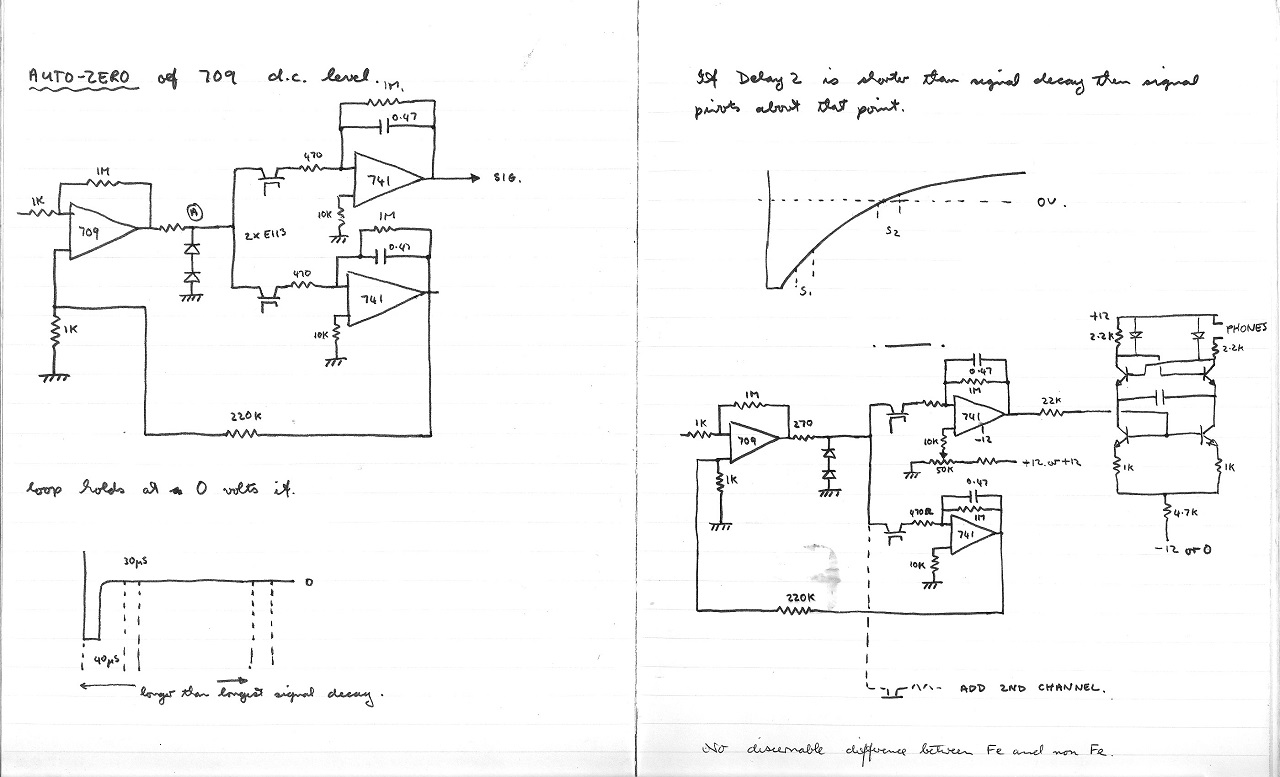 AUTO-ZERO of 709 d.c. level.
1M
0.47
470
741
SIG.
1M
1K
709
A
10K
2 x E113
1M
0.47
470
741
10K
1K
220K
loop holds at 0 volts if.
30µS
0
40µS
longer than longest signal decay.
If Delay 2 is shorter than signal decay then signal
pivots about that point.
0V.
S2
S1
+12
PHONES
2.2K
2.2K
0.47
1M
1M
741
22K
1K
709
270
10K
-12
50K
+12 or +12
1K
1K
1K
0.47
470Ω
1M
741
4.7K
10K
-12 or 0
220K
ADD 2ND CHANNEL.
No discernable difference between Fe and non Fe.